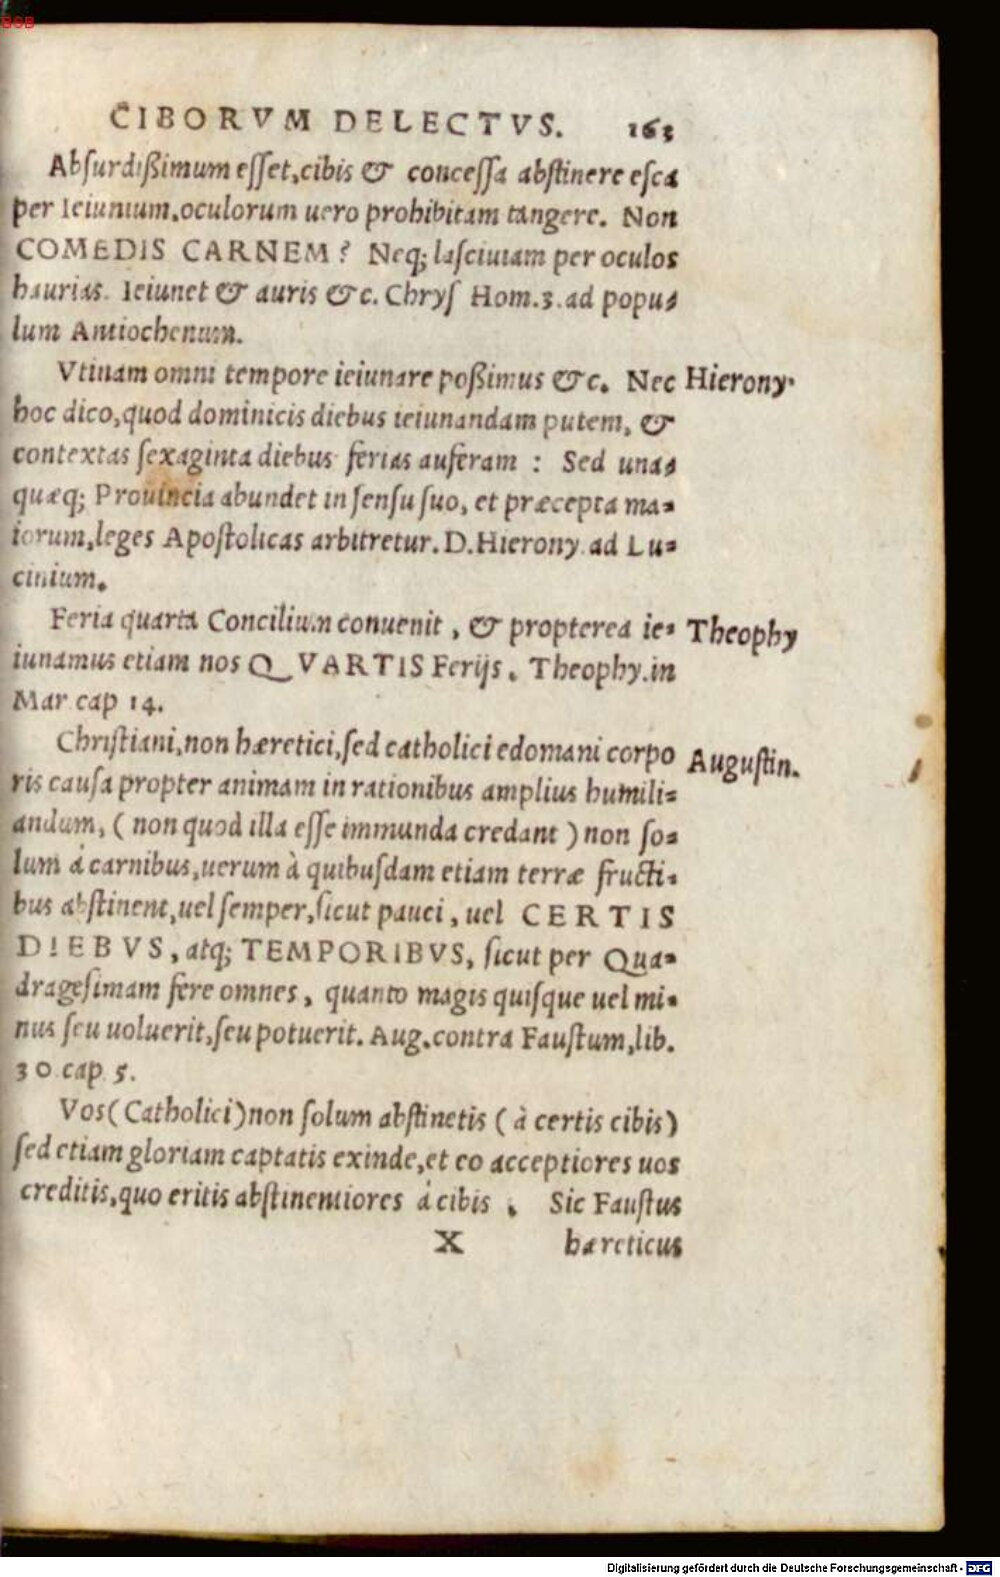 BSB
CIBORVM DELECTVS. 163
Absurdißimum esset, cibis & concessa abstinere esca
per Ieiunium, oculorum uero prohibitam tangere. Non
COMEDIS CARNEM? Neq; lasciuiam per oculos
haurias. Ieiunet & auris &c. Chrys Hom. 3. ad popu⸗
lum Antiochenum.
Vtinam omni tempore ieiunare poßimus &c. Nec Hierony.
hoc dico, quod dominicis diebus ieiunandam putem, &
contextas sexaginta diebus ferias auferam : Sed unas⸗
quæq; Prouincia abundet in sensu suo, et præcepta ma⸗
iorum, leges Apostolicas arbitretur. D. Hierony. ad Lu⸗
cinium.
Feria quarta Concilium conuenit, & propterea ie⸗ Theophy
iunamus etiam nos QVARTIS Ferijs. Theophy. in
Mar cap 14.
Christiani, non hæretici, sed catholici edomani corpo Augustin.
ris causa propter animam in rationibus amplius humili⸗
andum, (non quod illa esse immunda credant) non so⸗
lum á carnibus, uerum à quibusdam etiam terræ fructi⸗
bus abstinent, uel semper, sicut pauci, uel CERTIS
DIEBVS, atq; TEMPORIBVS, sicut per Qua⸗
dragesimam fere omnes, quanto magis quisque uel mi⸗
nus seu uoluerit, seu potuerit. Aug. contra Faustum, lib.
30 cap 5.
Vos (Catholici) non solum abstinetis (à certis cibis)
sed etiam gloriam captatis exinde, et eo acceptiores uos
creditis, quo eritis abstinentiores á cibis. Sic Faustus
X hæreticus
Digitalisierung gefördert durch die Deutsche Forschungsgemeinschaft - DFG